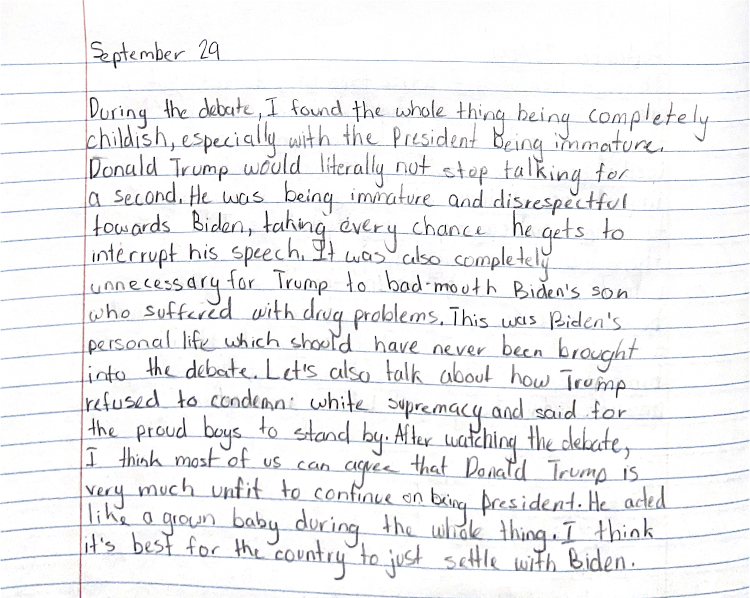 September 29
During the debate, I found the whole thing being completely
childish, especially with the President being immature.
Donald Trump would literally not stop talking for
a second. He was being immature and disrespectful
towards Biden, taking every chance he gets to
interrupt his speech. It was also completely
unnecessary for Trump to bad-mouth Biden's son
who suffered with drug problems. This was Biden's
personal life which should have never been brought
into the debate. Let's also talk about how Trump
refused to condemn: white supremacy and said for
the proud boys to stand by. After watching the debate,
I think most of us can agree that Donald Trump is
very much unfit to continue on being president. He acted
like a grown baby during the whole thing. I think
it's best for the country to just settle with Biden.